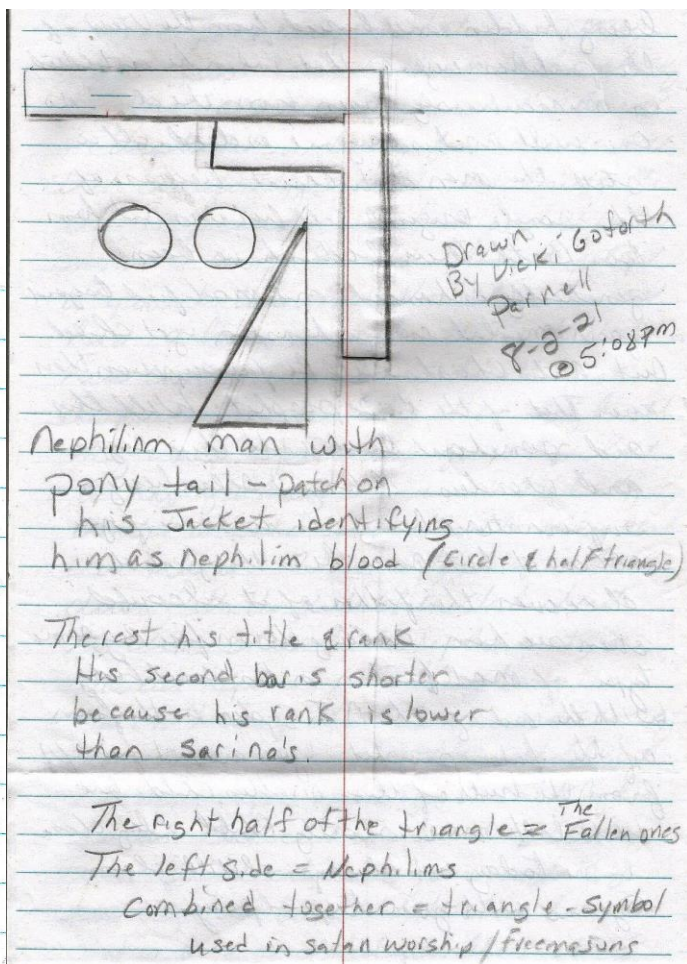 Drawn
By Vicki Goforth
Parnell
8-2-21
@ 5:08pm
Nephilinm man with
pony tail - patch on
his Jacket identifying
him as nephilim blood (circle & half triangle)
The rest his title & rank
His second bar is shorter
because his rank is lower
than Sarina's.
The right half of the triangle = The Fallen ones
The left side = Nephilims
Combined together = triangle - Symbol
used in satan worship / freemasons